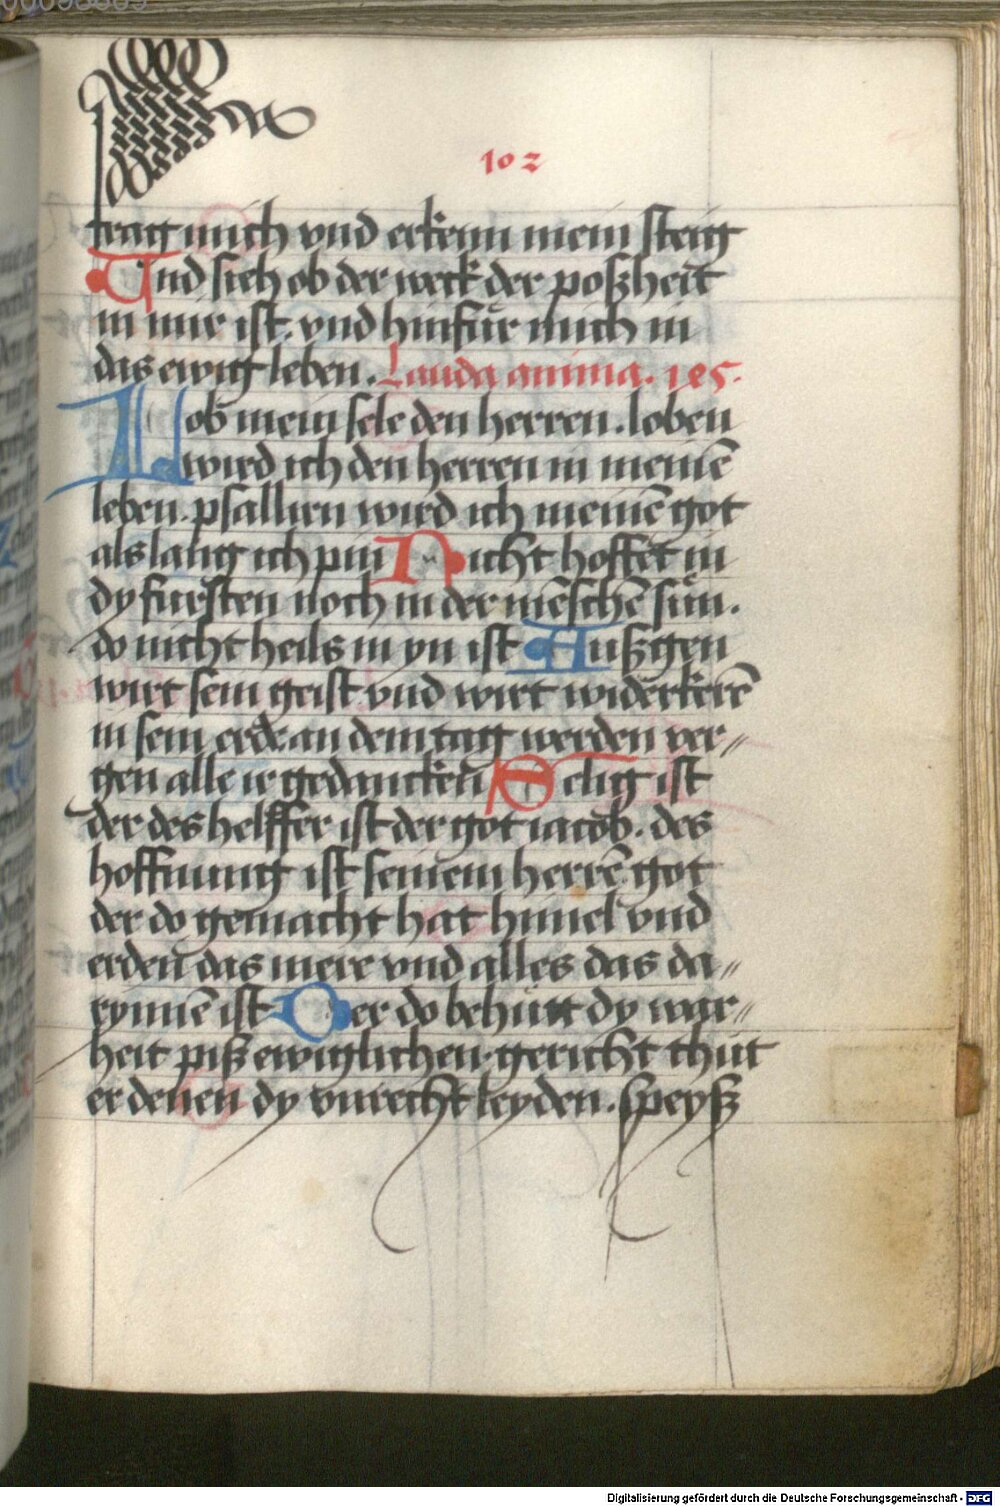 102
frag mich vnd erkenn mein steig
Vnd sieh ob der weck der poßheit
in mir ist. vnd hinfür mich in
das ewig leben. Lauda anima. 145.
Lob mein sele den herren. loben
wird ich den herren in meinē
leben. psallirn wird ich meinē got
als lang ich pin Nicht hoffet in
dy fürsten noch in der mēschē sün.
do nicht heils in yn ist Außgen
wirt sein geist vnd wirt widerkerē
in sein erde. an dem tag werden ver⸗
gen alle ir gedancken Selig ist
der des helffer ist der got iacob. des
hoffnung ist seinem herrē got
der do gemacht hat himel vnd
erden das mere vnd alles das da⸗
rynnē ist Der do behütt dy war⸗
heit piß ewiglichen. gericht thut
er denen dy vnrecht leyden. speyß
Digitalisierung gefördert durch die Deutsche Forschungsgemeinschaft - DFG